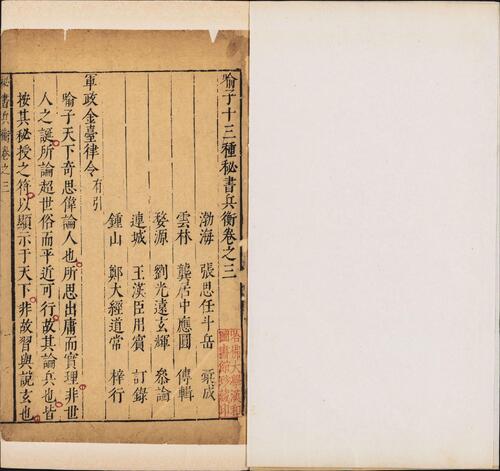 喻子十三種秘書兵衡卷之三
渤海 張思任斗岳 彙成
雲林 龔居中應圓 傳輯
婺源 劉光遠玄輝 叅論
連城 王漢臣用賓 訂錄
鍾山 鄭大經道常 梓行
軍政金臺律令 有引
喻子天下奇思偉論人也所思出庸而實理非世
人之誕所論超世俗而平近可行故其論兵也皆
按其秘授之符以顯示于天下非故習與說玄也
秘書兵衡卷之三
哈佛大學漢和
圖書館珍藏印